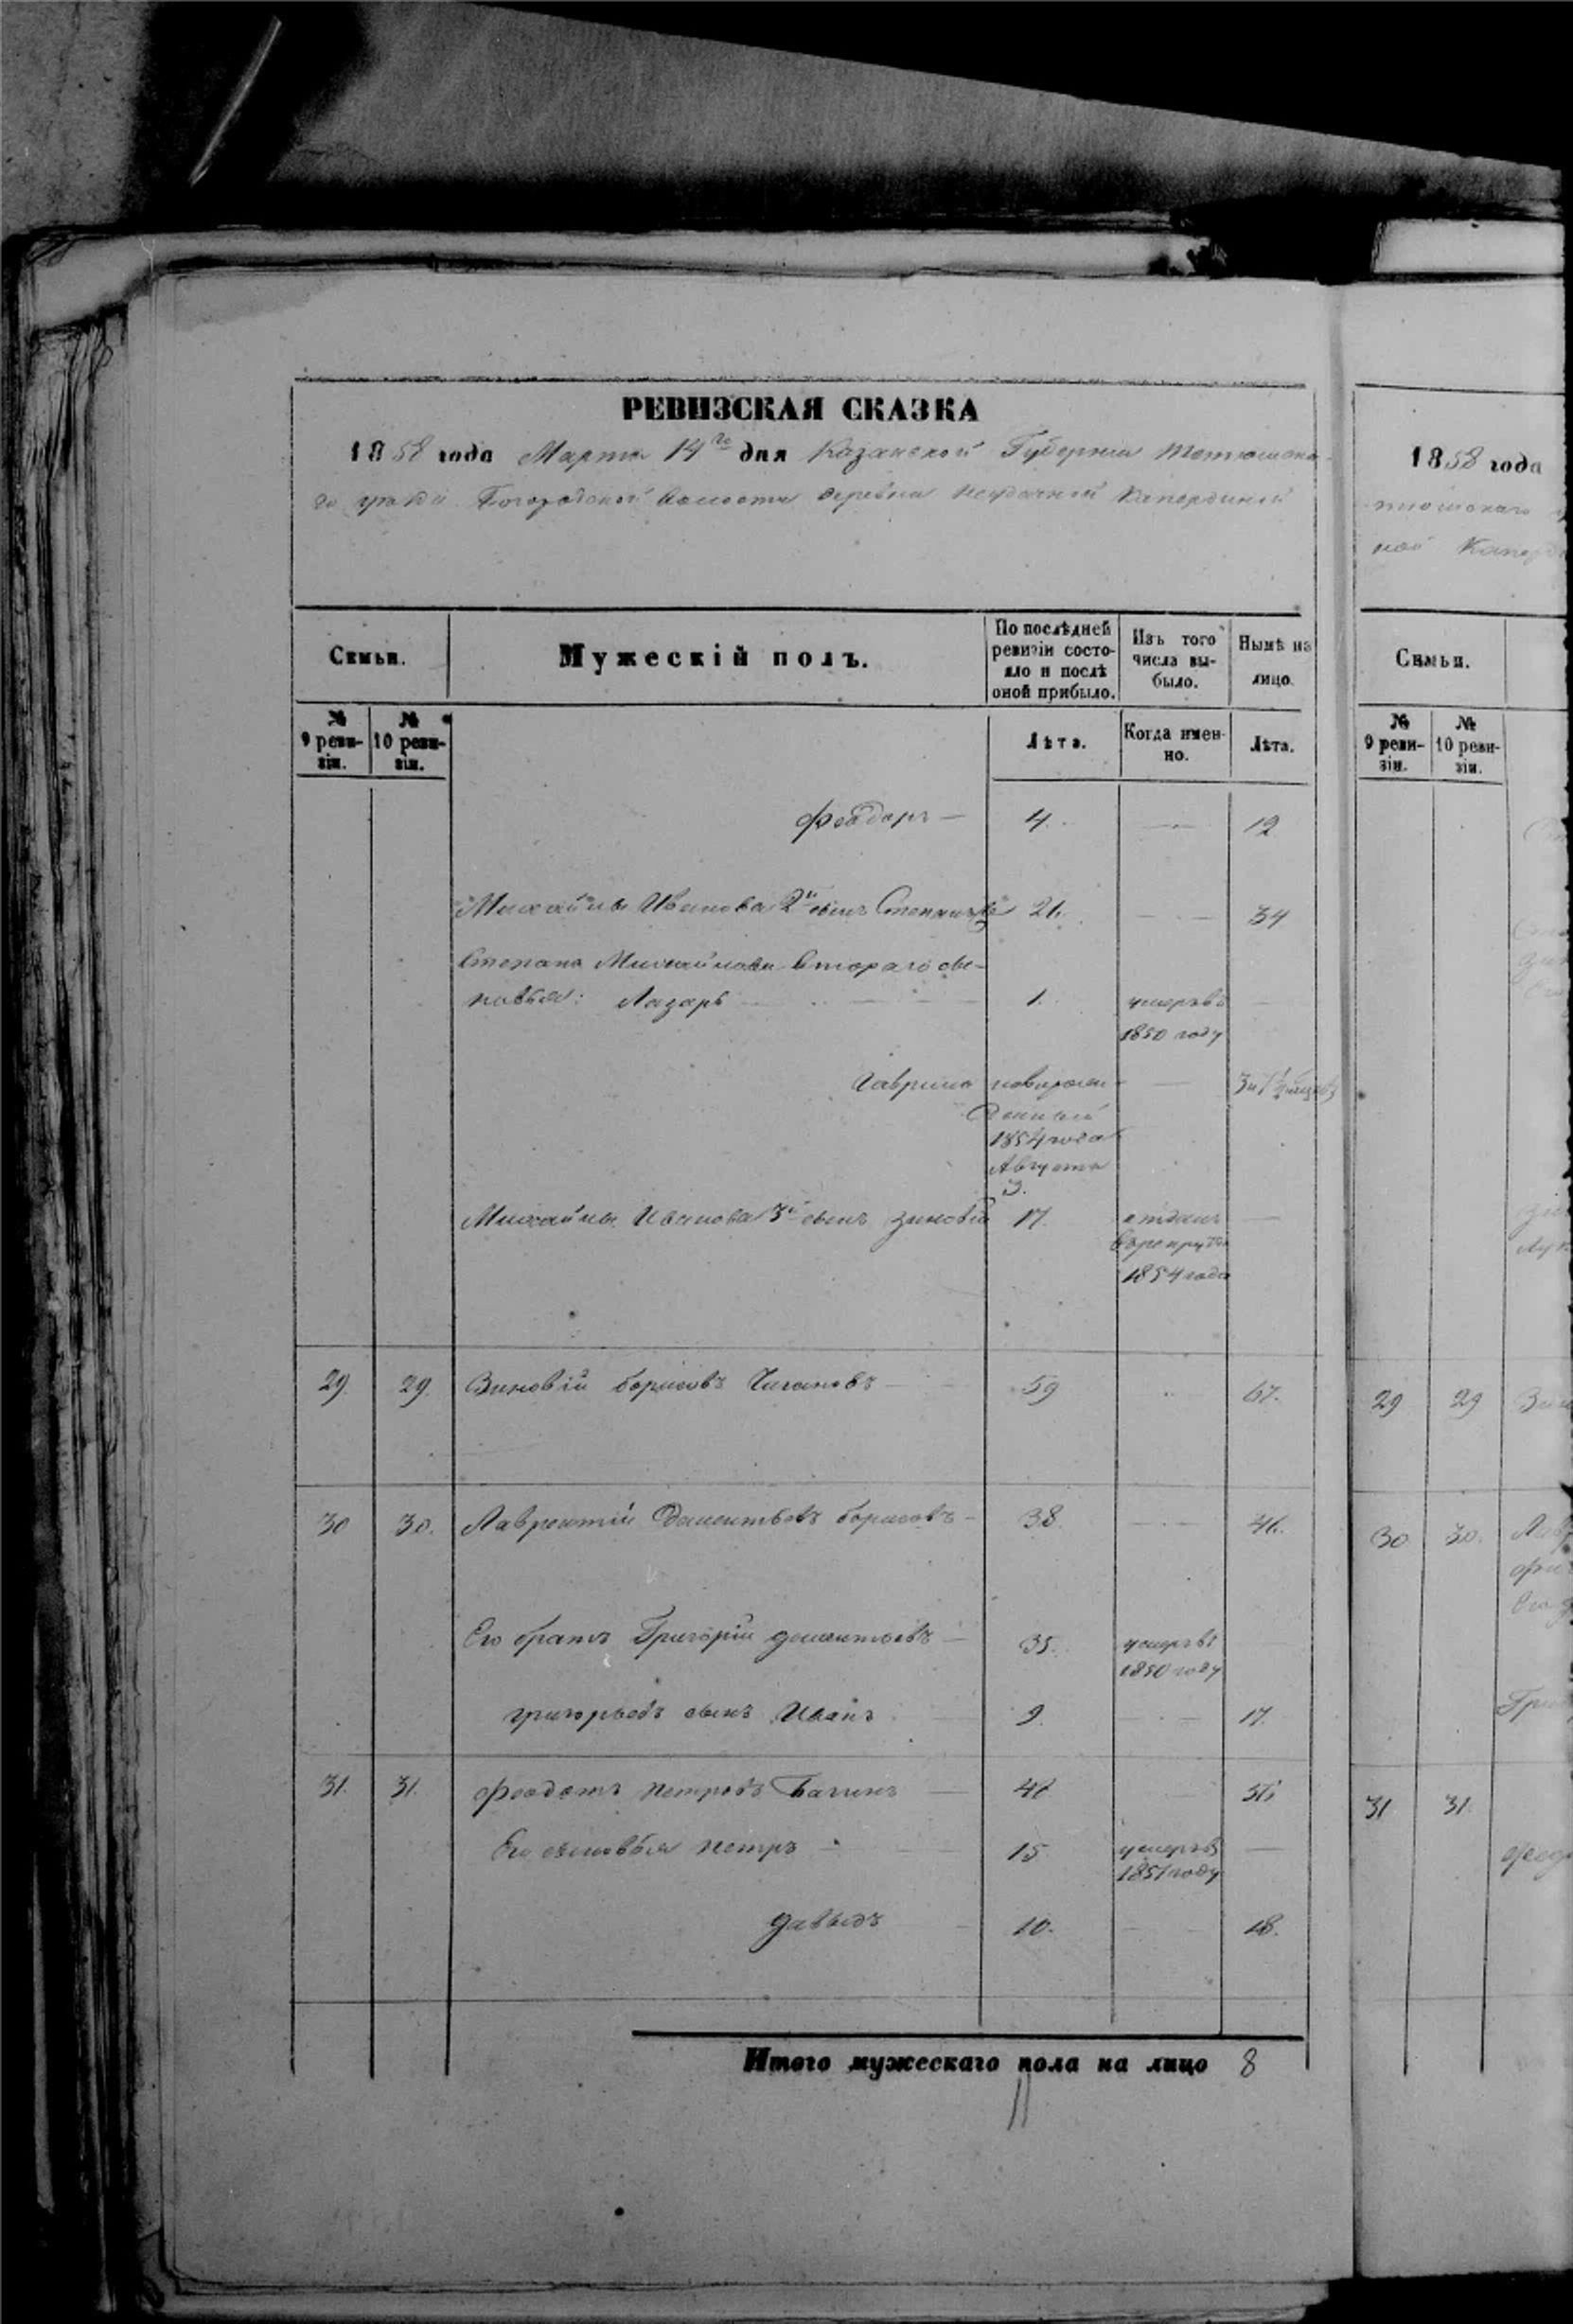 РЕВИЗСКАЯ СКАЗКА
1858 года Марта 14го дня Казанской Губернии Тетюшска-
го уѣзда Богородской волости деревни Неудачной Капердиной
Семьи.
Мужескій полъ.
По послѣдней ревизіи состояло и послѣ оной прибыло.
Изъ того числа выбыло.
Нынѣ на лицо.
№ 9 ревизіи.
№ 10 ревизіи.
Лѣта.
Когда именно.
Лѣта.
Феодоръ — 4. — 12
Михайлы Иванова 2й сынъ Степанъ 26. — 34
Степана Михайлова втораго сы-
новья: Лазарь — 1. умеръ въ —
1850 году
Гаврила новорож- —
денный
1854 года
Августа
Михайлы Иванова 3й сынъ Зиновій 17. отданъ —
в рекруты
1854 года
29 29. Зиновій Борисовъ 59 67.
30 30. Лаврентій Дементьевъ Борисовъ — 38. — 46.
Его братъ Григорій Дементьевъ — 35. умеръ въ
1850 году
Григорьевъ сынъ Иванъ 9. — 17.
31. 31. Феодотъ Петровъ — 48 — 56
Его сыновья Петръ — 15 умеръ въ —
1851 году
Давыдъ — 10. — 18.
Итого мужескаго пола на лицо 8
1858 года
Семьи.
№ 9 ревизіи.
№ 10 ревизіи.
29 29
30 30.
31 31.